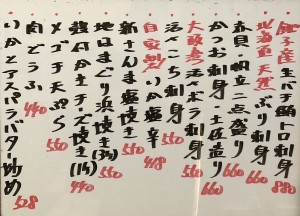 銚子産生バチ鮪トロ刺身 880
北海道天然ぶり刺身 660
赤貝帆立二点盛り 660
かつお刺身土佐造り 660
大蔵海活〆ボラ刺身 550
活〆こち刺身 550
自家製いか塩辛 418
新さんま塩焼き 550
地はまぐり浜焼き(3ヶ) 550
殻付かきチーズ焼き(1ヶ) 440
メゴチ天ぷら 550
肉どうふ 440
いかとアスパラバター炒め 528